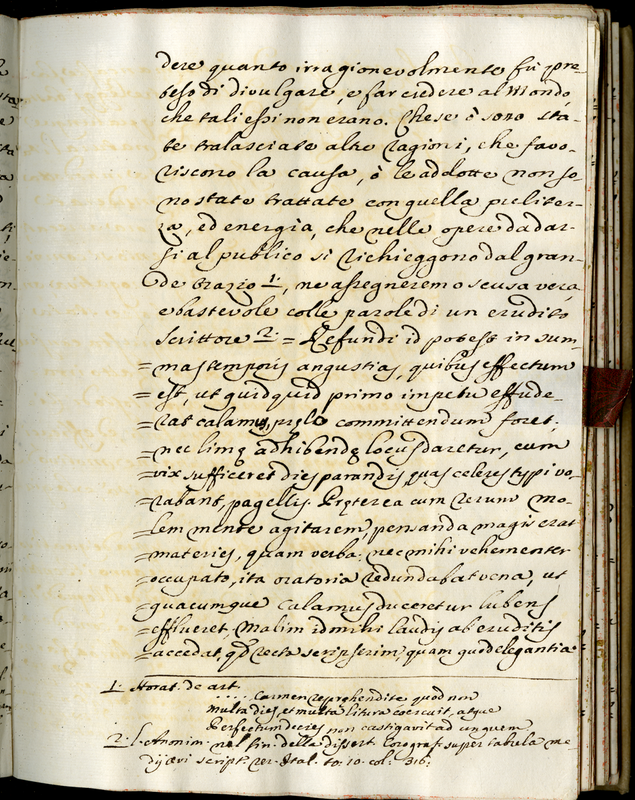 dere quanto irragionevolmente fù pre=
teso di divulgare, e far credere al Mondo,
che tali essi non erano. Che se ò sono sta=
te tralasciate altre ragioni, che favo=
riscono la causa, ò le addotte non so=
no state trattate con quella pulitez=
za, ed energia, che nelle opere da dar=
si al publico si richieggono dal gran=
de Orazio 1., ne assegneremo scusa vera,
e bastevole colle parole di un erudito
scrittore 2. = Refundi id potest in sum=
=mas temporis angustias, quibus effectum
=est, ut quidquid primo impetu effude=
=rat calamus, pręlo committendum foret,
=nec limę adhibendę locus daretur, cum
=vix sufficeret dies parandis quas celeres typi vo=
=rabant, pagellis. Pręterea cum rerum mo=
=lem mente agitarem, pensanda magis erat
=materies, quam verba: nec mihi vehementer
=occupato, ita oratoria redundabat vena, ut
=quacumque calamus duceretur lubens
=efflueret. Malim id mihi laudis ab eruditis
=accedat, qd recta scripserim, quam quod elegantia
1. Horat. de art.
.... Carmen reprehendite quod non
Multa dies, et multa litura coercuit, atque
Perfectum decies non castigavit ad unguem.
2. l'Anonim. nel fin. della dissert. Corograf. super tabula me=
dij ævi script. rer. Ital. to. 10. col. 316.